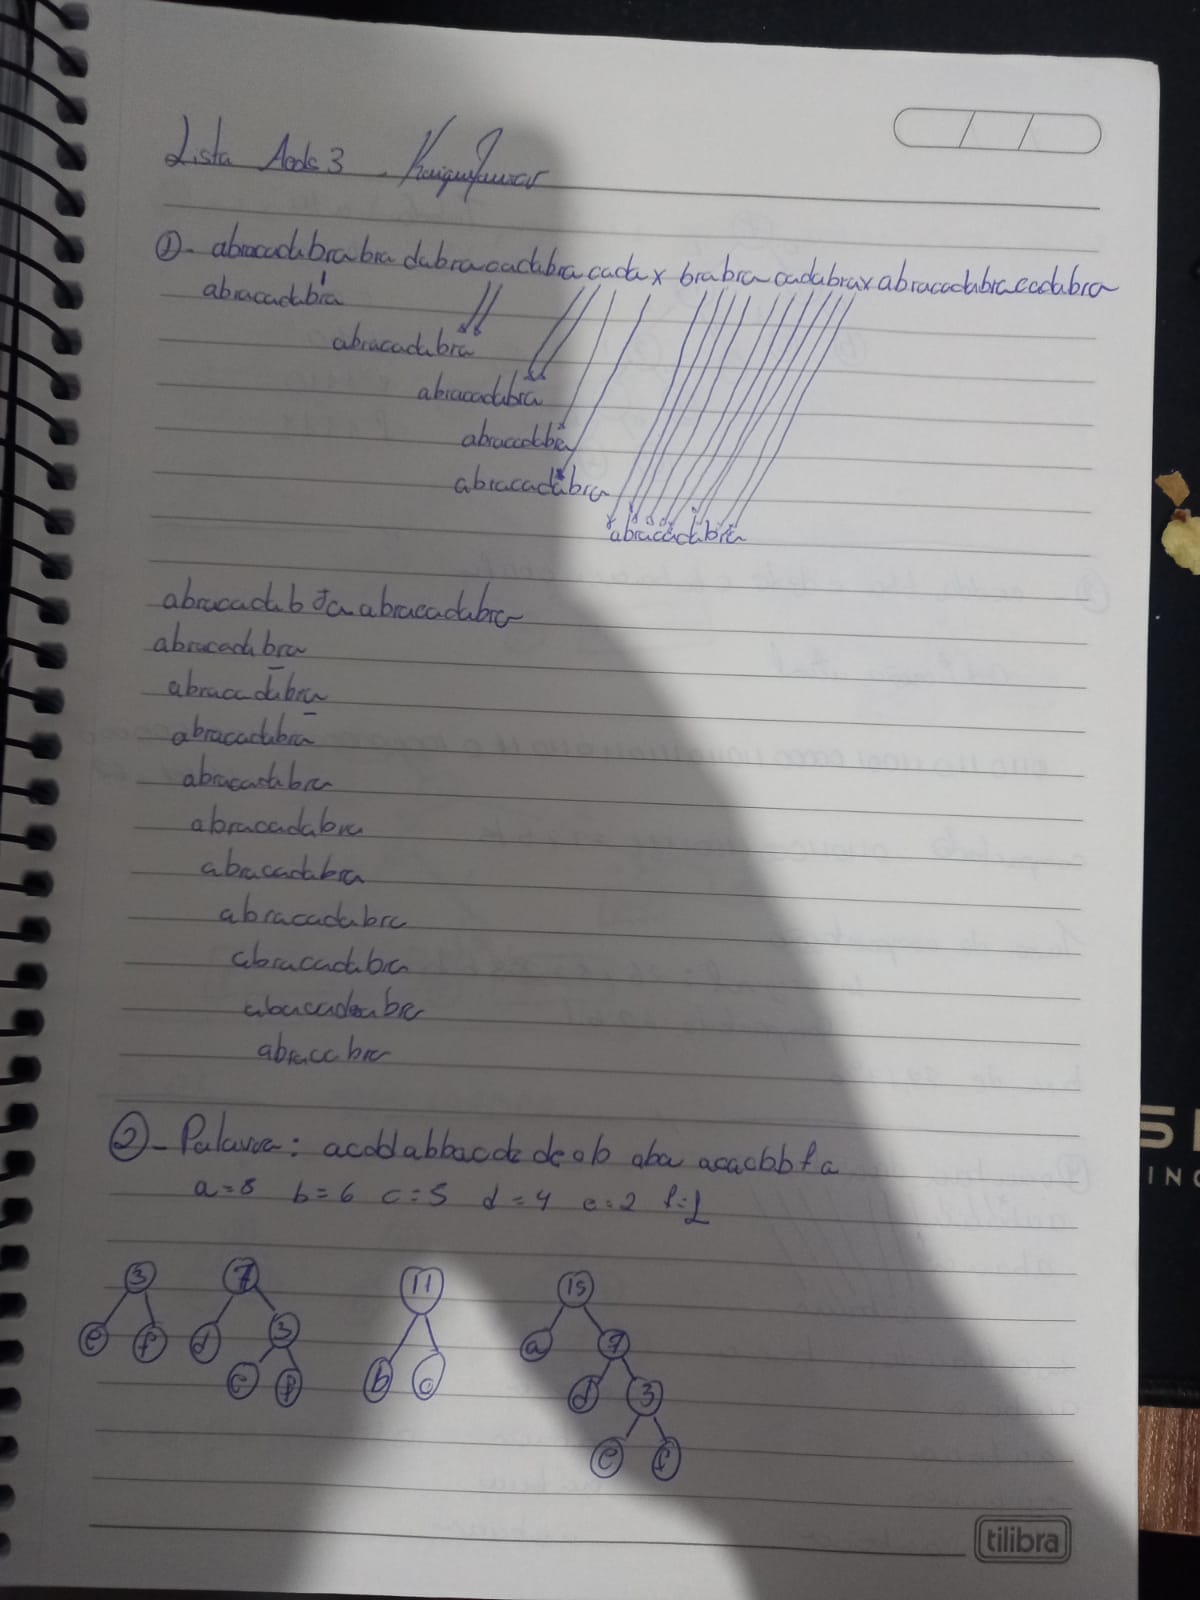 Lista Aeds 3 -
①- abracadabrabra dabracadabra cadax brabracadabrax abracadabracadabra
abracadabra
abracadabra
abracadabra
abracadabra
abracadabra
abracadabra
abracadabra abracadabra
abracadabra
abracadabra
abracadabra
abracadabra
abracadabra
abracadabra
abracadabra
abracadabra
abacadabra
abraccbra
②- Palavra: acddabbacde deab aba acacbbfa
a=8 b=6 c=5 d=4 e=2 f=1
3 7 11 15
e f d 3 b c a 7
e f d 3
e f
tilibra